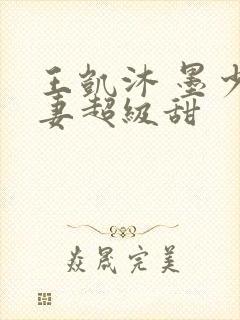 王凯沐 墨少
妻超级甜
焱晟完美